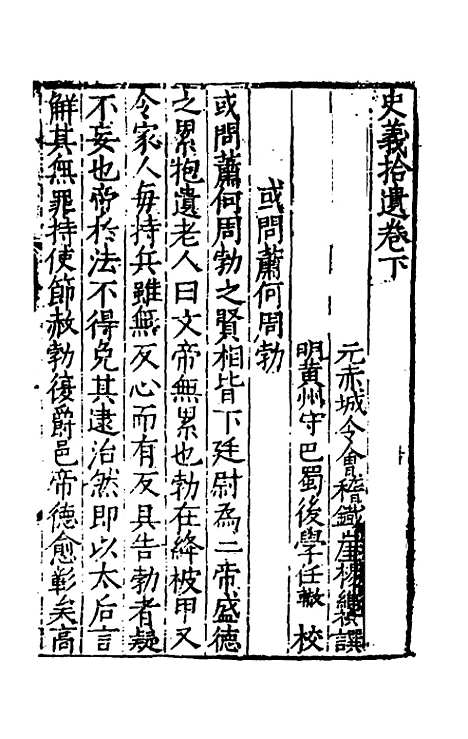 史義拾遺卷下
元赤城令會稽鐵崖楊維楨譔
明黃州守巴蜀後學任轍校
或問蕭何周勃
或問蕭何周勃之賢相皆下廷尉為二帝盛德
之累抱遺老人曰文帝無累也勃在絳被甲又
令家人每持兵雖無反心而有反具告勃者疑
不妄也帝於法不得免其逮治然即以太后言
解其無罪持使節赦勃復爵邑帝德愈彰矣高